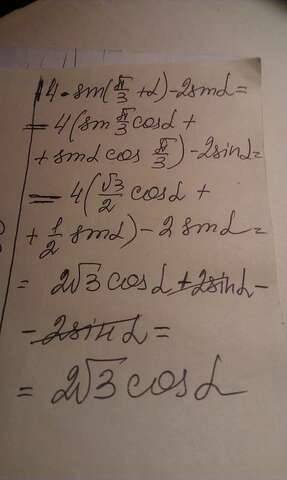 4·sin(π/3 + α) - 2sinα =
= 4(sin π/3 cosα +
+ sinα cos π/3) - 2sinα =
= 4(√3/2 cosα +
+ 1/2 sinα) - 2sinα =
= 2√3 cosα + 2sinα -
- 2sinα =
= 2√3 cosα